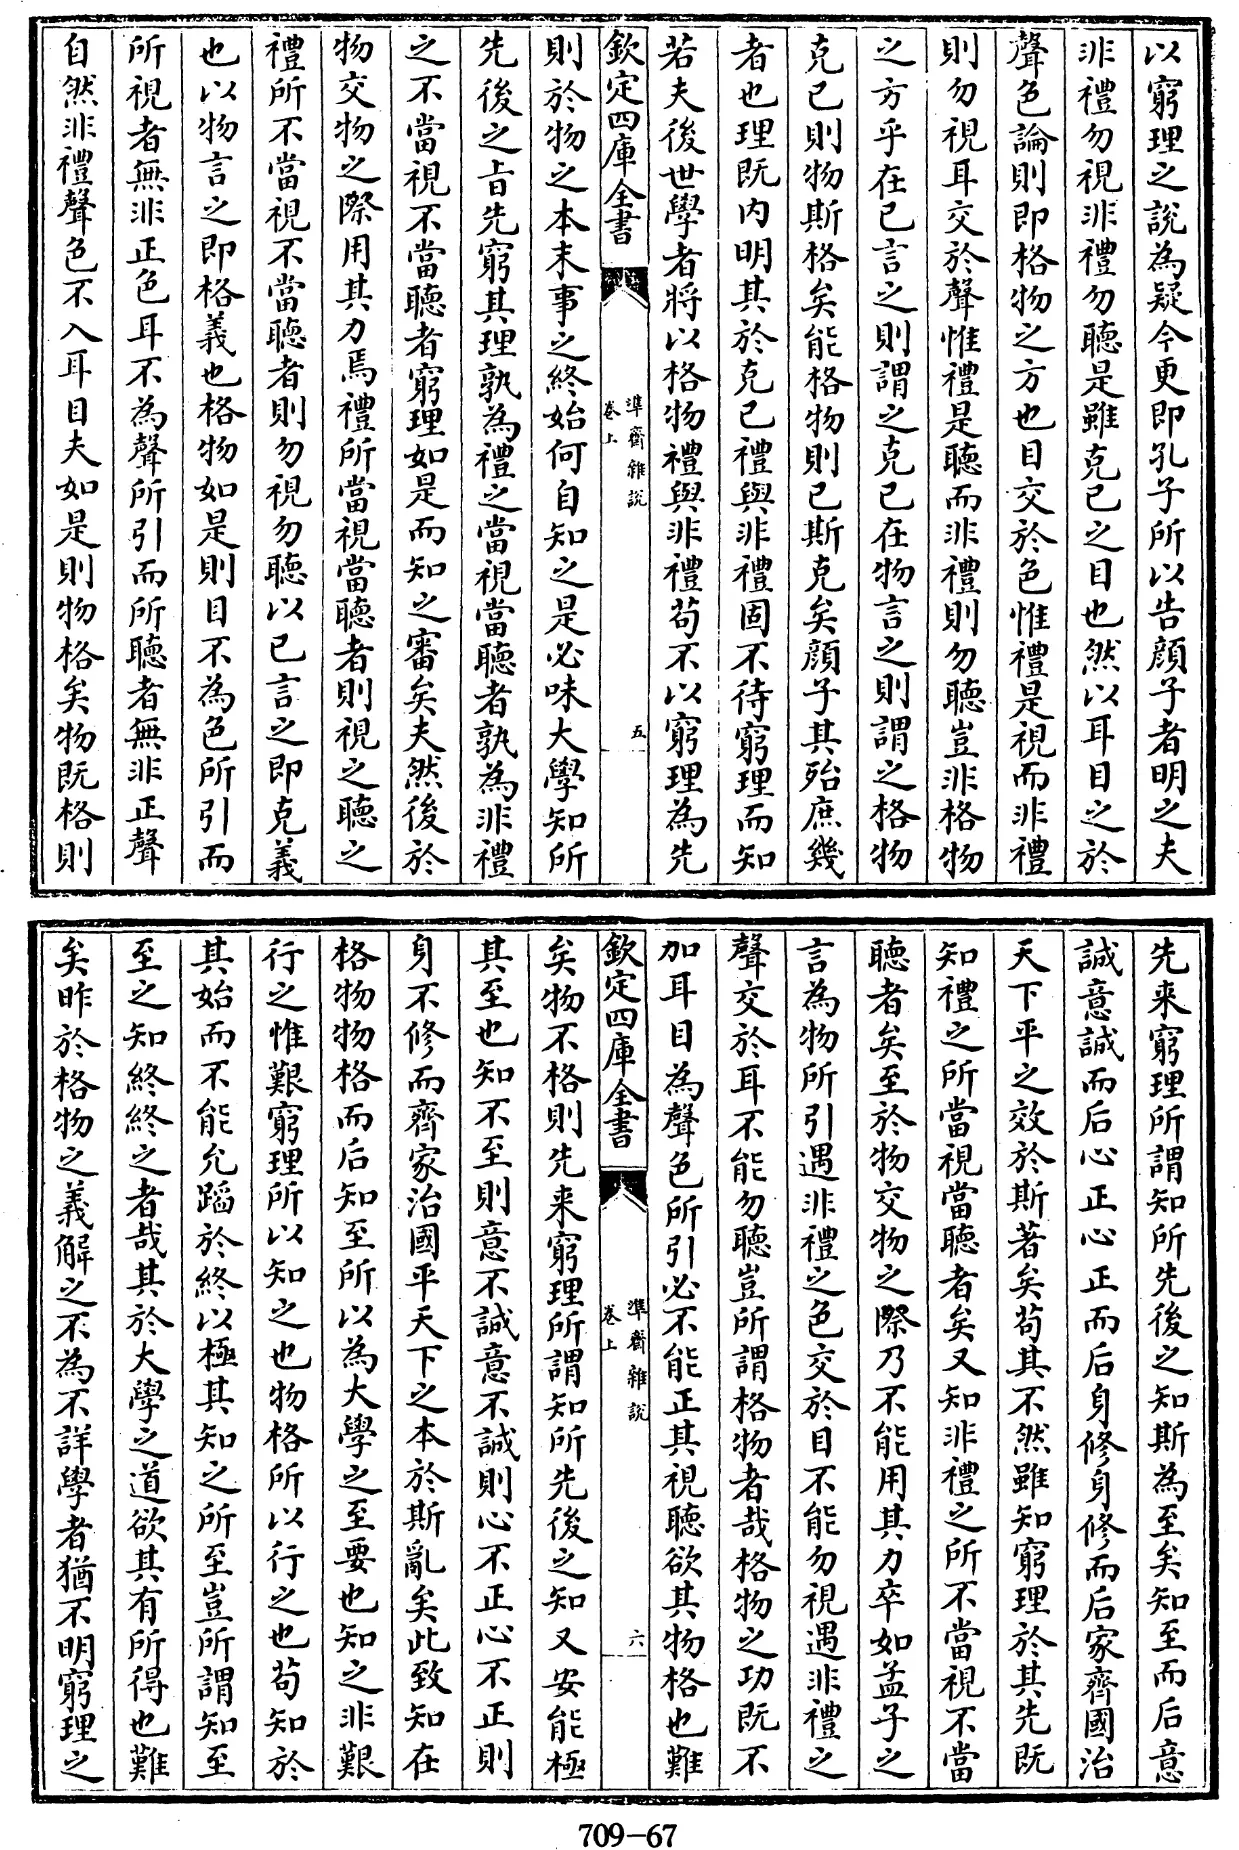 以窮理之説為疑今更即孔子所以告顔子者明之夫
非禮勿視非禮勿聽是雖克己之目也然以耳目之於
聲色論則即格物之方也目交於色惟禮是視而非禮
則勿視耳交於聲惟禮是聽而非禮則勿聽豈非格物
之方乎在已言之則謂之克已在物言之則謂之格物
克已則物斯格矣能格物則已斯克矣顔子其殆庶幾
者也理既内明其於克已禮與非禮固不待窮理而知
若夫後世學者將以格物禮與非禮苟不以窮理為先
欽定四庫全書
準齋雜說
卷上
五
則於物之本末事之終始何自知之是必味大學知所
先後之旨先窮其理孰為禮之當視當聽者孰為非禮
之不當視不當聽者窮理如是而知之審矣夫然後於
物交物之際用其力焉禮所當視當聽者則視之聽之
禮所不當視不當聽者則勿視勿聽以已言之即克義
也以物言之即格義也格物如是則目不為色所引而
所視者無非正色耳不為聲所引而所聽者無非正聲
自然非禮聲色不入耳目夫如是則物格矣物既格則
先来窮理所謂知所先後之知斯為至矣知至而后意
誠意誠而后心正心正而后身修身修而后家齊國治
天下平之效於斯著矣苟其不然雖知窮理於其先既
知禮之所當視當聽者矣又知非禮之所不當視不當
聽者矣至於物交物之際乃不能用其力卒如孟子之
言為物所引遇非禮之色交於目不能勿視遇非禮之
聲交於耳不能勿聽豈所謂格物者哉格物之功既不
加耳目為聲色所引必不能正其視聽欲其物格也難
欽定四庫全書
準齋雜說
卷上
六
矣物不格則先来窮理所謂知所先後之知又安能極
其至也知不至則意不誠意不誠則心不正心不正則
身不修而齊家治國平天下之本於斯亂矣此致知在
格物物格而后知至所以為大學之至要也知之非艱
行之惟艱窮理所以知之也物格所以行之也苟知於
其始而不能允蹈於終以極其知之所至豈所謂知至
至之知終終之者哉其於大學之道欲其有所得也難
矣昨於格物之義解之不為不詳學者猶不明窮理之
709-67